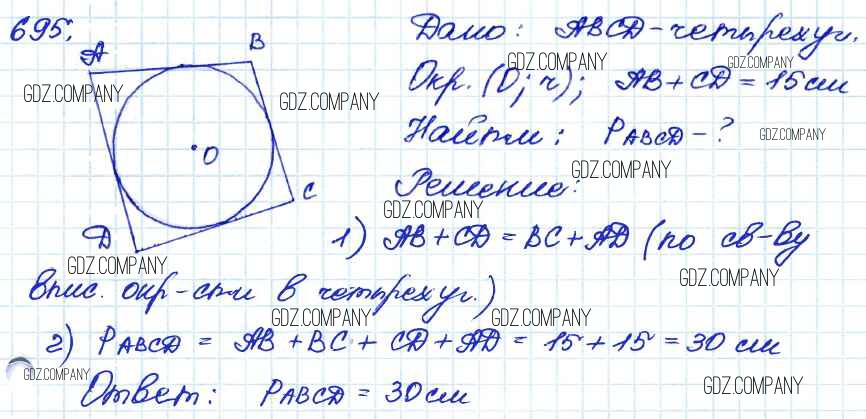 695.
A
B
O
C
D
Дано: ABCD - четырехуг.
Окр. (O; r); AB + CD = 15 см
Найти: PABCD - ?
Решение:
1) AB + CD = BC + AD (по св-ву
впис. окр-сти в четырехуг.)
2) PABCD = AB + BC + CD + AD = 15 + 15 = 30 см
Ответ: PABCD = 30 см
GDZ.COMPANY
GDZ.COMPANY
GDZ.COMPANY
GDZ.COMPANY
GDZ.COMPANY
GDZ.COMPANY
GDZ.COMPANY
GDZ.COMPANY
GDZ.COMPANY
GDZ.COMPANY
GDZ.COMPANY
GDZ.COMPANY
GDZ.COMPANY